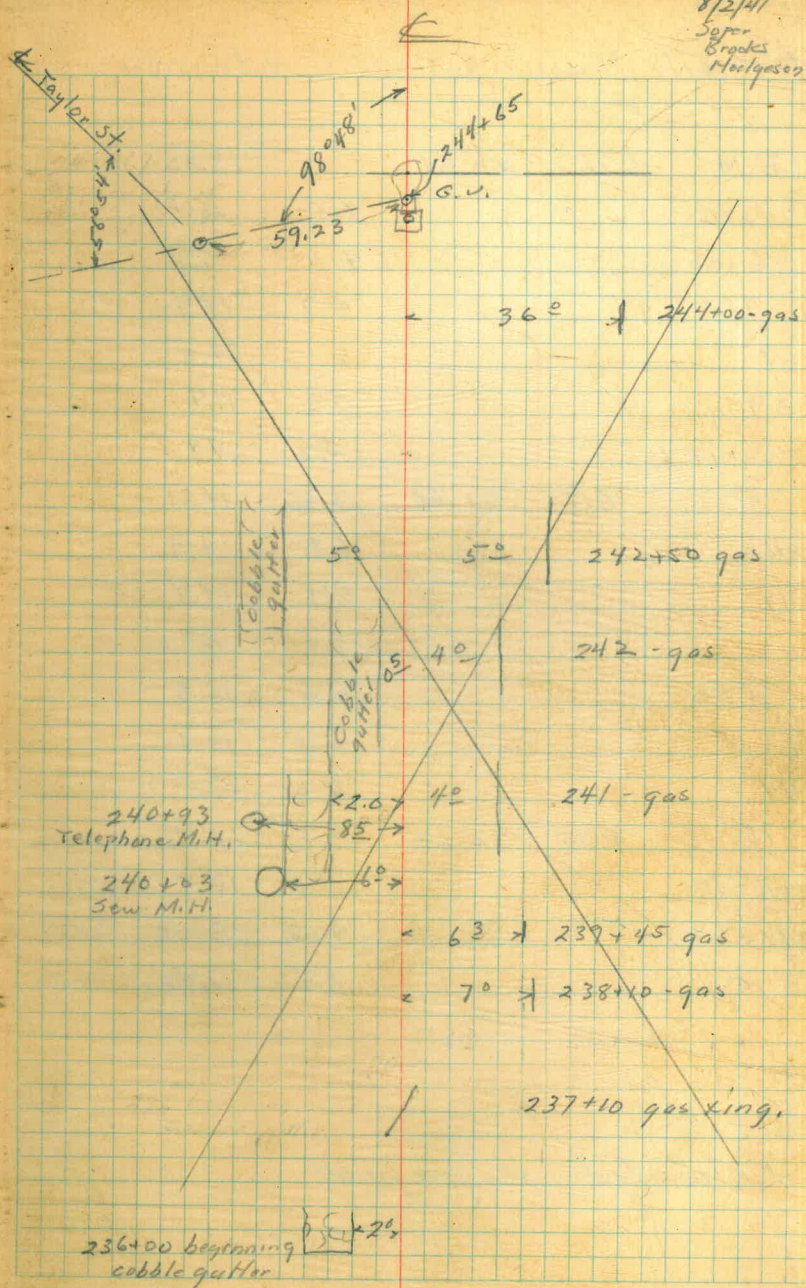 8/2/41
Soper
Brooks
Hodgeson
℄
℄ Taylor St.
98°48'
244+65
G.V.
59.23
36º 244+00-gas
Cobble gutter
5º 5º 242+50 gas
Cobble gutter
0⁵ 4º 242 - gas
240+93
Telephone M.H.
2.0 4º 241 - gas
8⁵
240+03
Sew M.H.
6º
6³ 239+45 gas
7º 238+10-gas
237+10 gas xing.
236+00 beginning
cobble gutter
2º